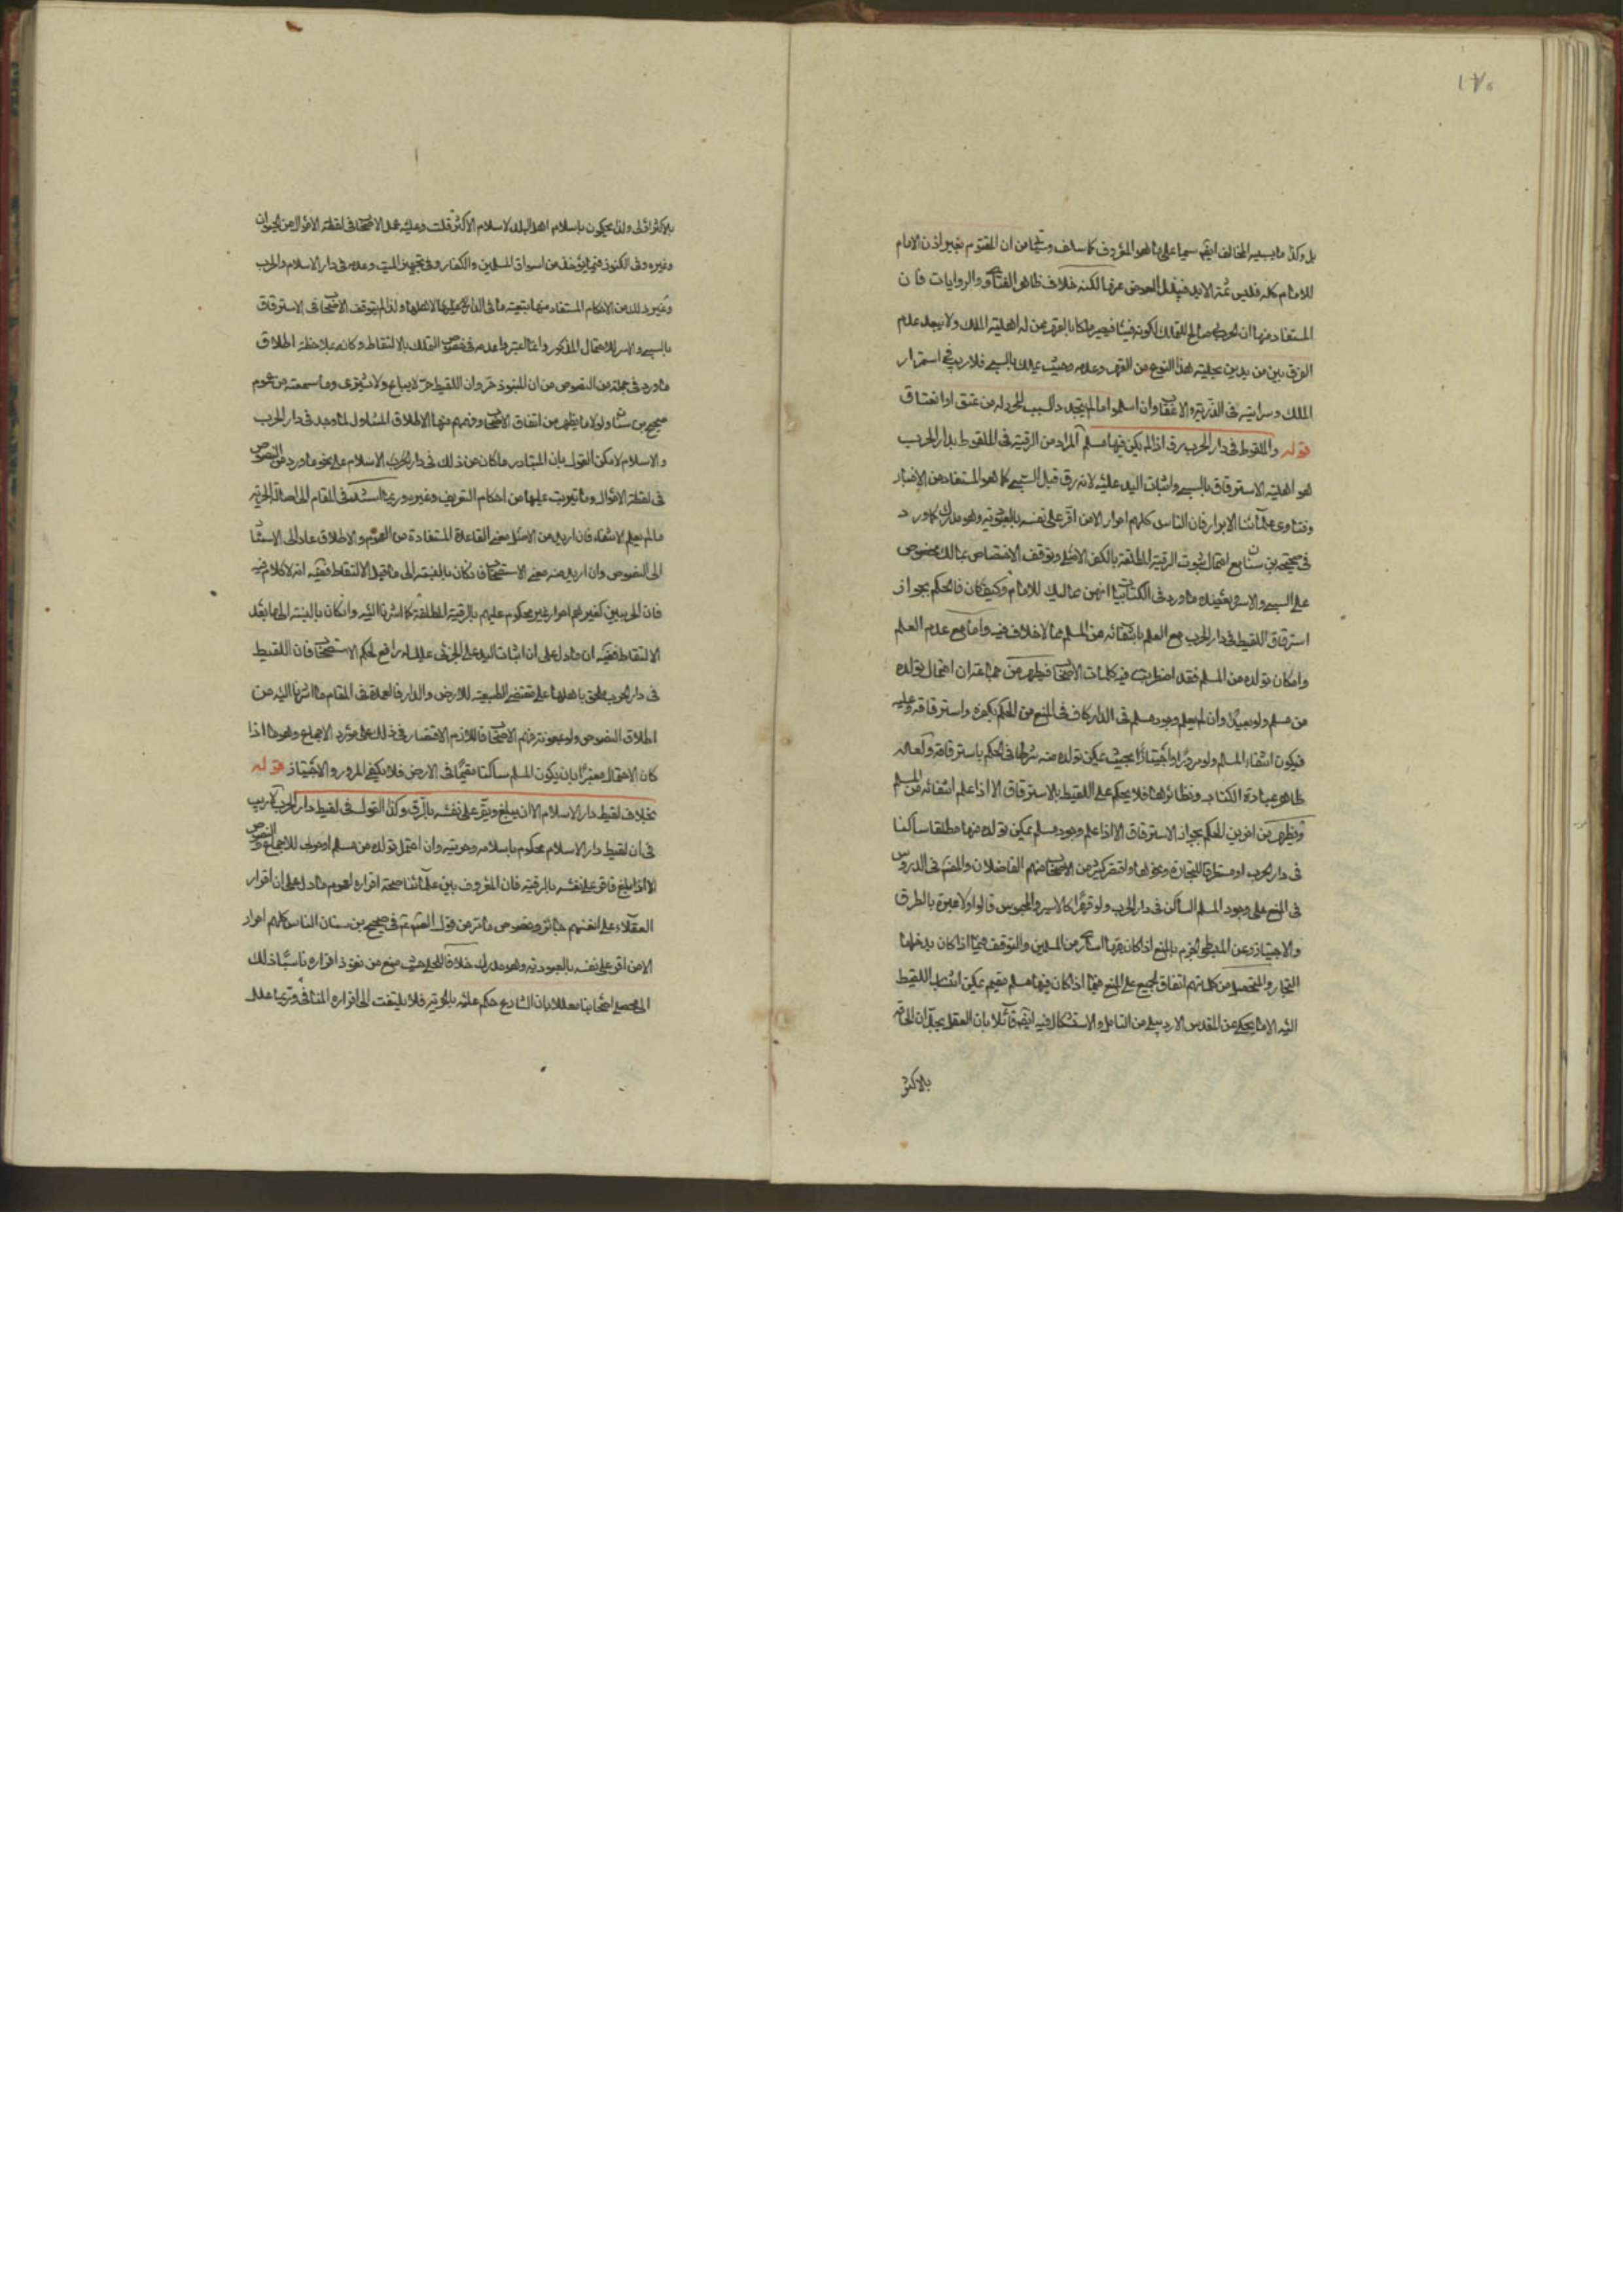 ١٧٥
بل وكذا ما يسبيه المخالف ايضا سيما على ما هو المعروف كما سلف من ان المغنوم بغير اذن الامام
للامام كله فليس ثمة الا يد فيقبل العوض عنها لكنه خلاف ظاهر الفتاوى والروايات فان
المستفاد منها ان الحربى صالح للتملك لكونه فيئا فيصير ملكا بالقهر ممن له اهلية الملك ولا يجد عدم
الفرق بين من يدين بحلية هذا النوع من القهر وعدمه وحيث يملك بالسبى فلا ريب فى استمرار
الملك وسرايته فى الذرية والاعقاب وان اسلموا ما لم يتجدد السبب المحرر له من عتق او انعتاق
قوله والملقوط فى دار الحرب يرق اذا لم يكن فيها مسلم المراد من الرقية فى الملقوط بدار الحرب
هو اهلية الاسترقاق بالسبى واثبات اليد عليه لانه رق قبل السبى كما هو المستفاد من الاخبار
وفتاوى علمائنا الابرار فان الناس كلهم احرار الا من اقر على نفسه بالعبودية وهو مدرك كما ورد
فى صحيحة بن سنان مع احتمال ثبوت الرقية المطلقة بالكفر الاصلى وتوقف الاختصاص بمالك مخصوص
على السبى والاسر يعضده ما ورد فى الكتابيات انهن مماليك للامام وكيف كان فالحكم بجواز
استرقاق اللقيط فى دار الحرب مع العلم بانتفائه من المسلم مما لا خلاف فيه واما مع عدم العلم
وامكان تولده من المسلم فقد اضطربت فيه كلمات الاصحاب فيظهر من جماعة ان احتمال تولده
من مسلم ولو بعيدا وان لم يعلم وجود مسلم فى الدار كاف فى المنع من الحكم بكفره واسترقاقه وعليه
فيكون انتفاء المسلم ولو مرورا او اجتيازا بحيث يمكن تولده منه شرطا فى الحكم باسترقاقه ولعله
ظاهر عبارة الكتاب ونظائرها فلا يحكم على اللقيط بالاسترقاق الا اذا علم انتفائه من المسلم
ويظهر من اخرين الحكم بجواز الاسترقاق الا اذا علم وجود مسلم يمكن تولده منها مطلقا ساكنا
فى دار الحرب او مستطرقا للتجارة ونحوها واقتصر كثير من الاصحاب منهم الفاضلان والمص فى الدروس
فى المنع على وجود المسلم الساكن فى دار الحرب ولو قهرا كالاسير والمحبوس قالوا ولا عبرة بالطرق
والاجتياز وعن المبسوط الجزم بالمنع اذا كان فيها اسارى من المسلمين والتوقف فيما اذا كان يدخلها
التجار والمتحصل من كلماتهم اتفاق الجميع على المنع فيما اذا كان فيها مسلم مقيم يمكن انتساب اللقيط
اليه الا ما يحكى عن المقدس الاردبيلى من التامل والاستشكال فيه ايضا قائلا بان العقل يجد ان الحاقه
بالاكثر
بالاكثر اولى ولذا يحكون باسلام اهل البلد لاسلام الاكثر قلت وعليه عمل الاصحاب فى لقطة الاموال من الحيوان
وغيره وفى الكنوز فيما يؤخذ من اسواق المسلمين والكفار وفى تجهيز الميت وعدمه فى دار الاسلام والحرب
وغير ذلك من الاحكام المستفاد منها تبعية ما فى الدار لاهلها ولذا لم يتوقف الاصحاب فى الاسترقاق
بالسبى والاسر للاحتمال المذكور وانما اعتبر عدمه فى خصوص التملك بالالتقاط وكانه بملاحظة اطلاق
ما ورد فى جملة من النصوص من ان المنبوذ حر وان اللقيط حر لا يباع ولا يشترى وما سمعته من عموم
صحيح بن سنان ولولا ما يظهر من اتفاق الاصحاب وفهمهم منها الاطلاق المتناول لما وجد فى دار الحرب
والاسلام لامكن القول بان المتبادر ما كان من ذلك فى دار الاسلام على نحو ما ورد من النصوص
فى لقطة الاموال وما يترتب عليها من احكام التعريف وغيره وربما استند فى المقام الى اصالة الحرية
ما لم يعلم الانتفاء فان اريد من الاصل معنى القاعدة المستفادة من العموم والاطلاق عاد الى الاستناد
الى النصوص وان اريد منه معنى الاستصحاب فان كان بالنسبة الى ما قبل الالتقاط ففيه انه لا كلام فيه
فان الحربيين كغيرهم احرار غير محكوم عليهم بالرقية المطلقة كما اشرنا اليه وان كان بالنسبة الى ما بعد
الالتقاط ففيه ان ما دل على ان اثبات اليد على الحربى مملك له رافع لحكم الاستصحاب فان اللقيط
فى دار الحرب ملحق باهلها على مقتضى الطبيعة للارض والدار فالعمدة فى المقام ما اشرنا اليه من
اطلاق النصوص ولو بمعونة فهم الاصحاب فاللازم الاقتصار فى ذلك على مورد الاجماع وهو ما اذا
كان الاحتمال معتبرا بان يكون المسلم ساكنا مقيما فى الارض فلا يكفى المرور والاجتياز قوله
بخلاف لقيط دار الاسلام الا ان يبلغ ويقر على نفسه بالرق وكذا القول فى لقيط دار الحرب لا ريب
فى ان لقيط دار الاسلام محكوم باسلامه وحريته وان احتمل تولده من مسلم او حربى للاجماع والنصوص
الا اذا بلغ فاقر على نفسه بالرقية فان المعروف بين علمائنا صحة اقراره لعموم ما دل على ان اقرار
العقلاء على انفسهم جائز وخصوص ما مر من قوله فى صحيح بن سنان الناس كلهم احرار
الا من اقر على نفسه بالعبودية وهو مدرك خلافا للحلى حيث منع من نفوذ اقراره ناسبا ذلك
الى محصلى اصحابنا معللا بان الشارع حكم عليه بالحرية فلا يلتفت الى اقراره المنافى وربما علل